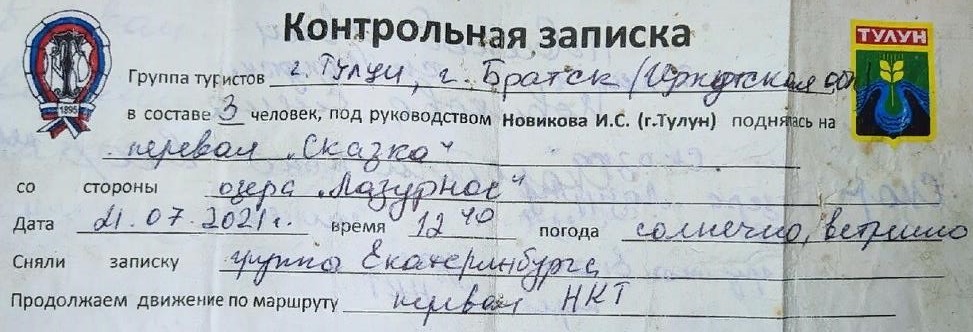 Контрольная записка
1895
ТУЛУН
Группа туристов г. Тулун, г. Братск (Иркутская обл)
в составе 3 человек, под руководством Новикова И.С. (г.Тулун) поднялась на
перевал „Сказка“
со стороны озера „Лазурное“
Дата 21.07.2021г. время 12 40 погода солнечно, ветрено
Сняли записку группа Екатеринбурга
Продолжаем движение по маршруту перевал НКТ